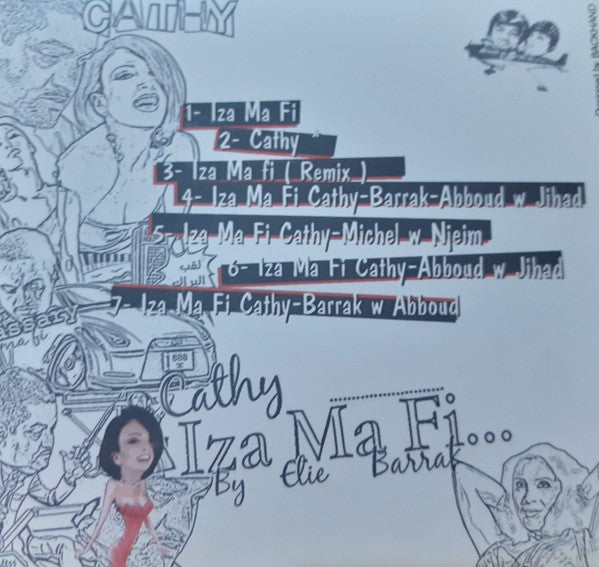 CATHY
1- Iza Ma Fi
2- Cathy *
3- Iza Ma fi ( Remix )
4- Iza Ma Fi Cathy-Barrak-Abboud w Jihad
5- Iza Ma Fi Cathy-Michel w Njeim
6- Iza Ma Fi Cathy-Abboud w Jihad
7- Iza Ma Fi Cathy-Barrak w Abboud
888
Cathy
Iza Ma Fi...
By Elie Barrak
BACKHAND